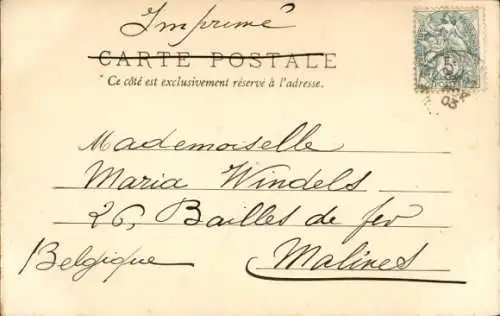 Imprimé
CARTE POSTALE
Ce côté est exclusivement réservé à l'adresse.
Mademoiselle
Maria Windels
26, Bailles de fer
Malines
Belgique
5
03